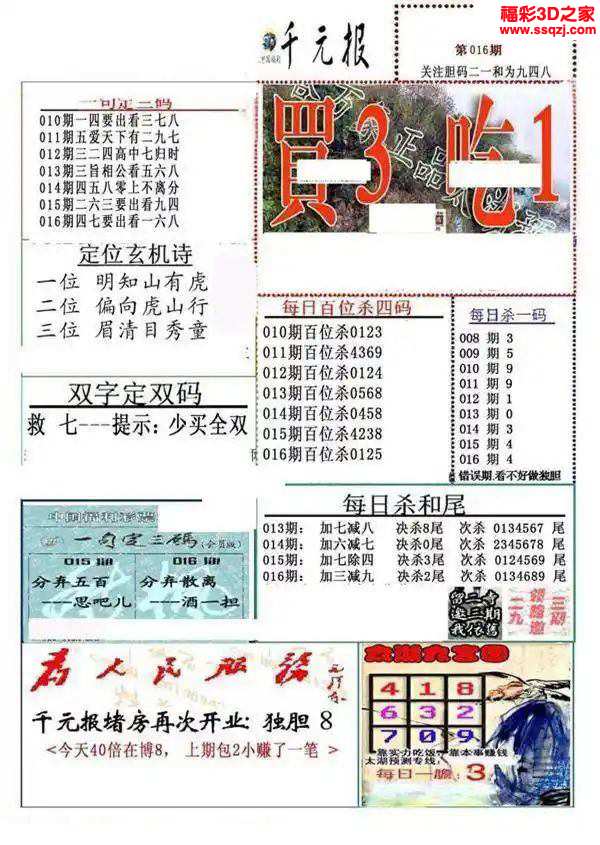 福彩3D之家
www.ssqzj.com
千元报
第016期
关注胆码二一和为九四八
一句定三码
010期一四要出看三七八
011期五爱天下有二九七
012期三二四高中七归时
013期三旨相公看五六八
014期四五八零上不离分
015期二六三要出看九四
016期四七要出看一六八
買3 吃1
正品
定位玄机诗
一位 明知山有虎
二位 偏向虎山行
三位 眉清目秀童
每日百位杀四码
010期百位杀0123
011期百位杀4369
012期百位杀0124
013期百位杀0568
014期百位杀0458
015期百位杀4238
016期百位杀0125
每日杀一码
008 期 3
009 期 5
010 期 9
011 期 9
012 期 9
013 期 0
014 期 3
015 期 4
016 期 4
错误期.看不好做独胆
双字定双码
救 七---提示: 少买全双
每日杀和尾
013期: 加七减八 决杀8尾 次杀 0134567 尾
014期: 加六减七 决杀0尾 次杀 2345678 尾
015期: 加七除四 决杀3尾 次杀 0124569 尾
016期: 加三减九 决杀2尾 次杀 0134689 尾
中国福利彩票
一句定三码 (会员版)
015期 016期
分弃五百 分弃散离
---思吧儿 ---酒一担
为人民服务
千元报堵房再次开业: 独胆 8
<今天40倍在博8, 上期包2小赚了一笔 >
太湖九宫图
4 1 8
6 3 2
7 0 9
靠实力吃饭 靠本事赚钱
太湖预测专线:
每日一胆: 3